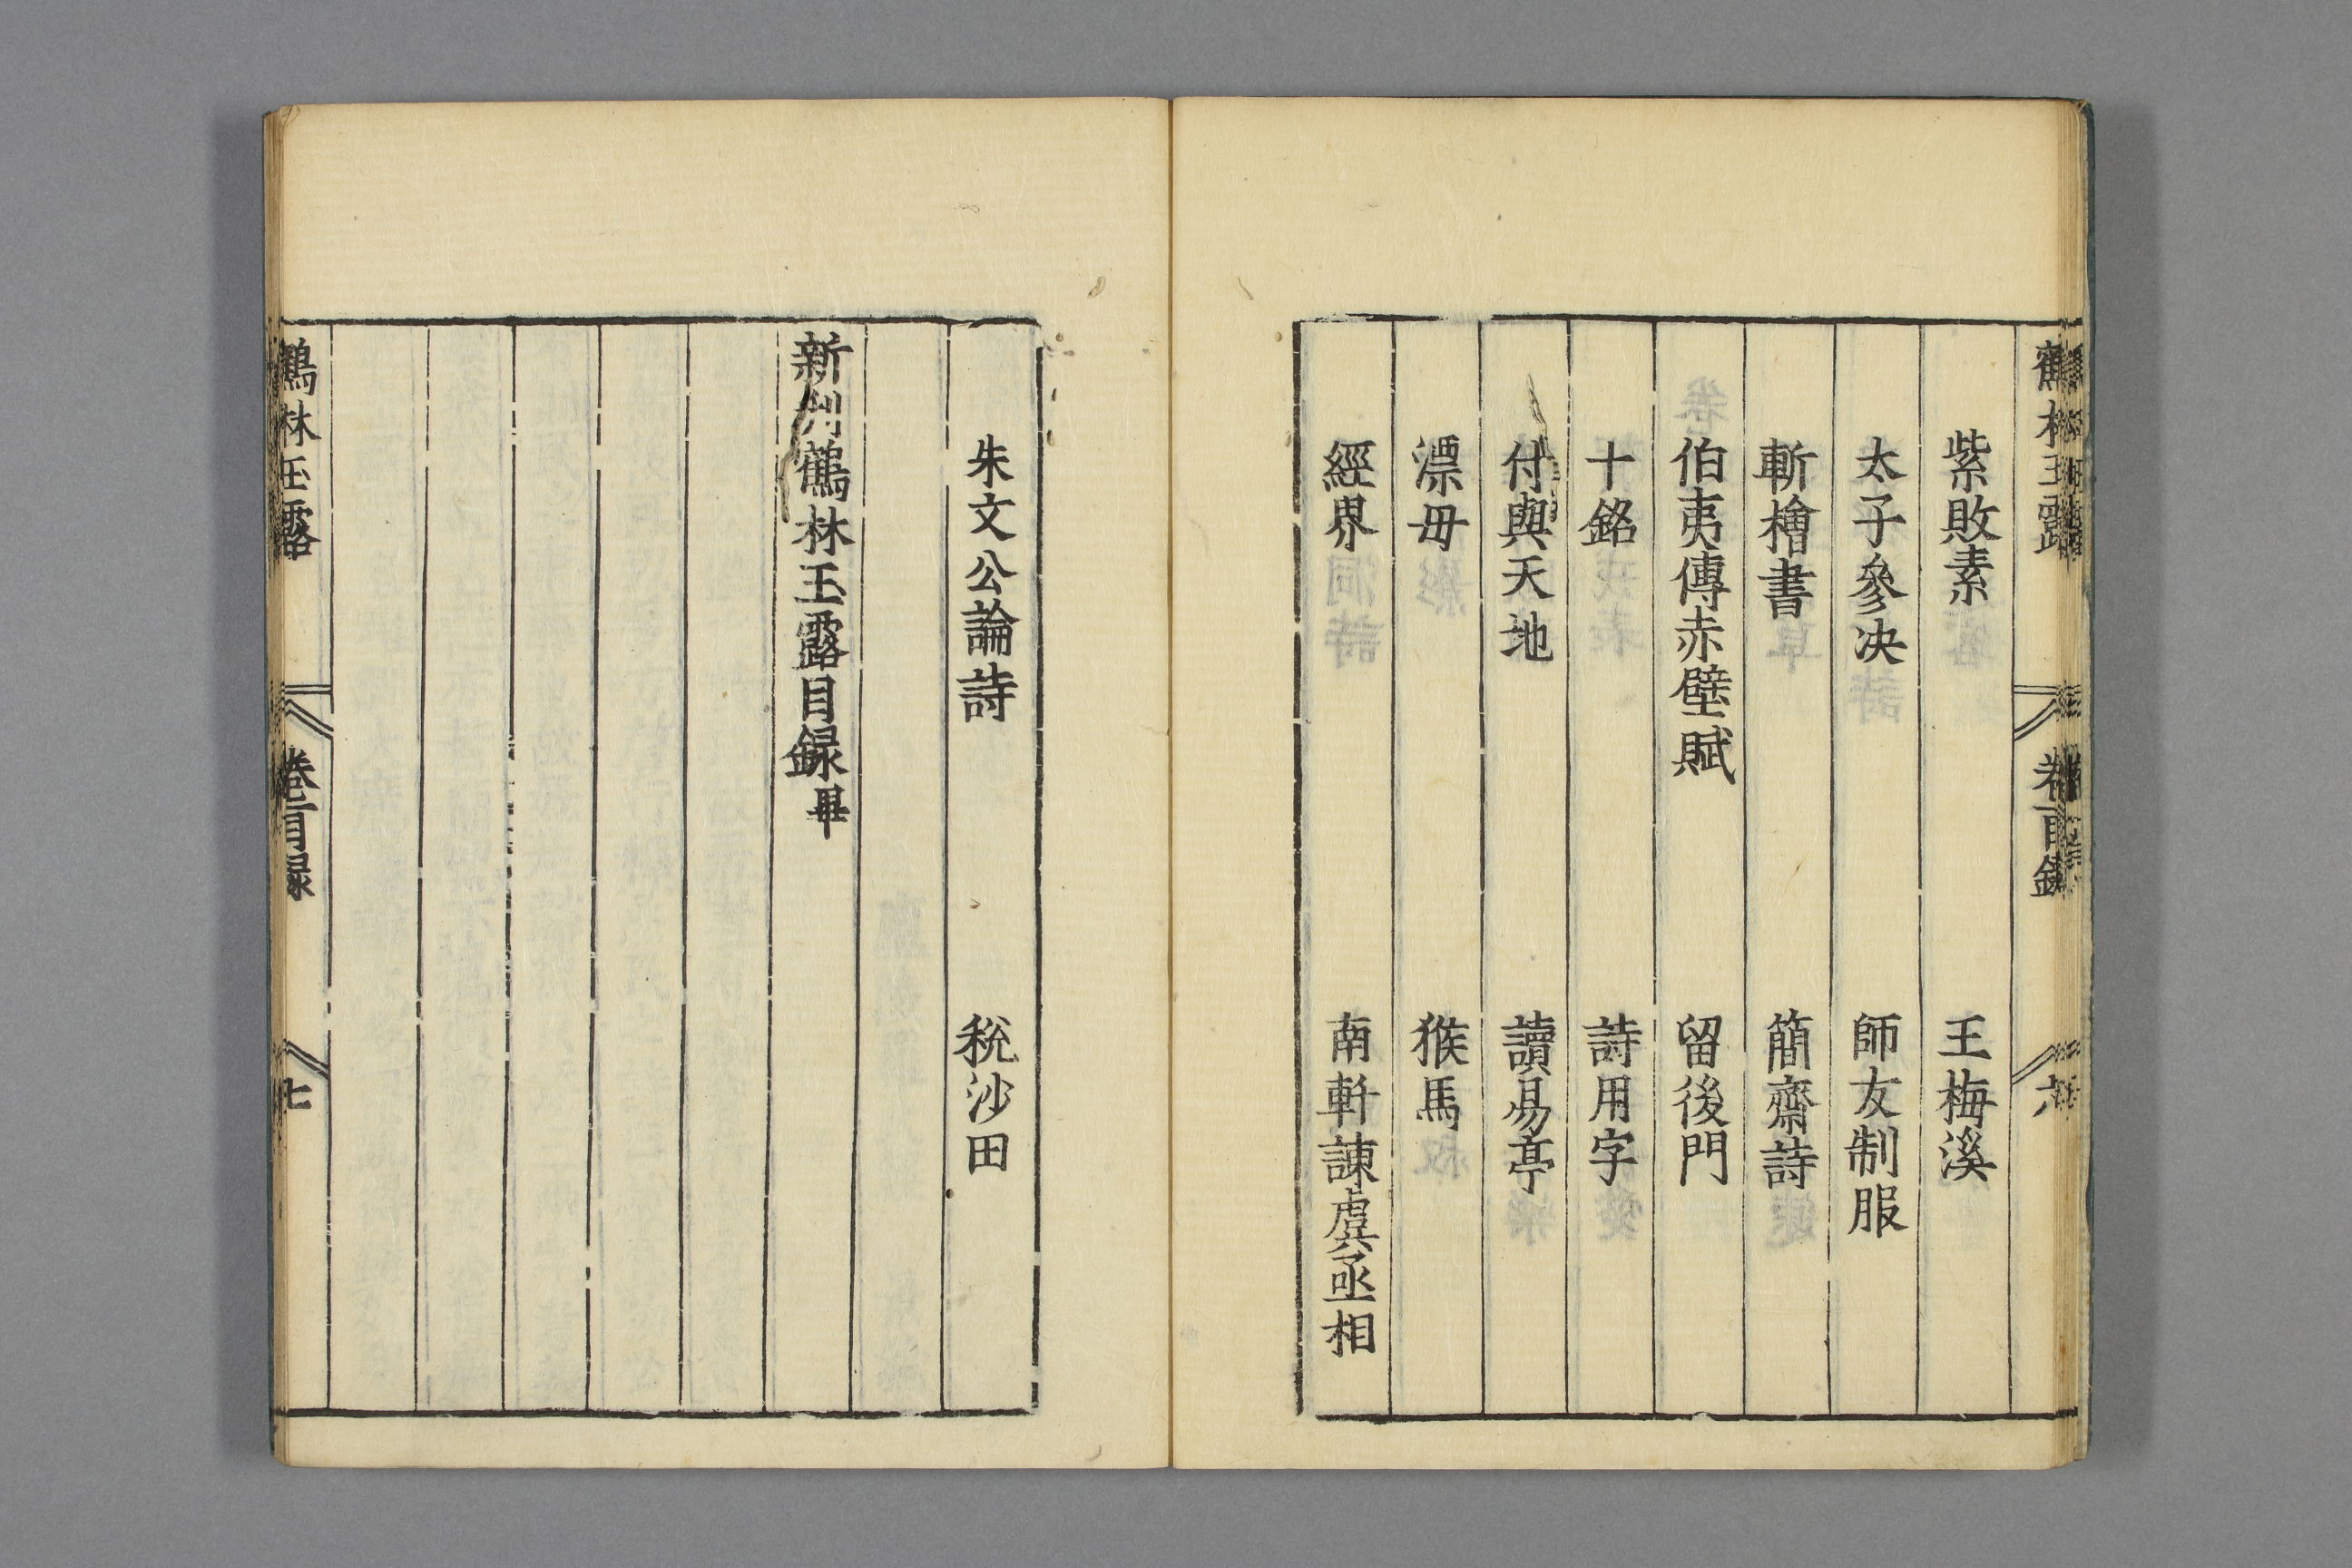 鶴林玉露 卷首目錄 六
紫敗素 王梅溪
太子參决 師友制服
斬檜書 簡齋詩
伯夷傳赤壁賦 留後門
十銘 詩用字
付與天地 讀易亭
漂毋 猴馬
經界 南軒諫虞丞相
朱文公論詩 稅沙田
新刋鶴林玉露目録畢
鶴林玉露 卷首目録 七